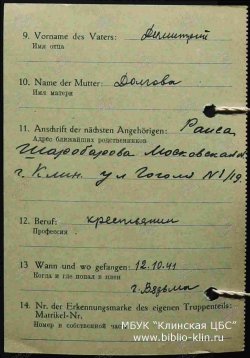 9. Vorname des Vaters: Дмитрий
Имя отца
10. Name der Mutter: Долгова
Имя матери
11. Anschrift der nächsten Angehörigen: Раиса
Адрес ближайших родственников
Шаробарова Московская
г. Клин. ул Гоголя №1/19
12. Beruf: крестьянин
Профессия
13 Wann und wo gefangen: 12.10.41
Когда и где попал в плен
г. Вязьма
14. Nr. der Erkennungsmarke des eigenen Truppenteils:
Matrikel-Nr.
Номер и собственной части
МБУК "Клинская ЦБС"
www.biblio-klin.ru